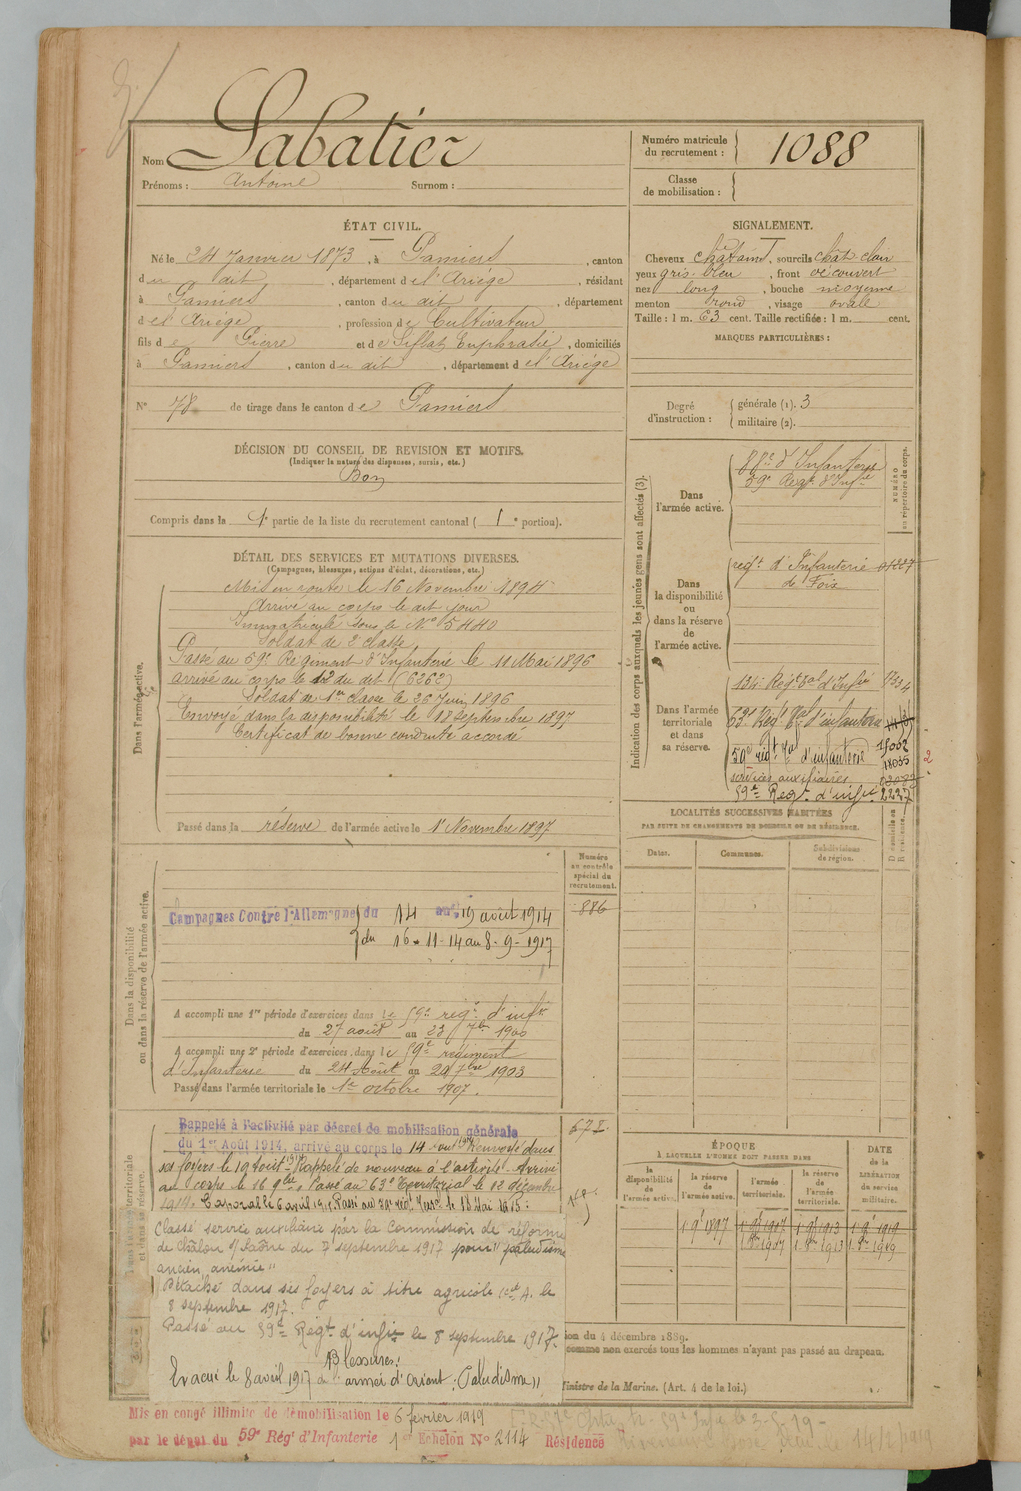 Nom Sabatier
Prénoms : Antoine Surnom :
Numéro matricule du recrutement : 1088
Classe de mobilisation :
ÉTAT CIVIL.
Né le 24 Janvier 1873, à Pamiers, canton
du dit, département de l'Ariège, résidant
à Pamiers, canton du dit, département
de l'Ariège, profession de Cultivateur
fils de Pierre et de Siflat Euphrasie, domiciliés
à Pamiers, canton du dit, département de l'Ariège
N° 78 de tirage dans le canton de Pamiers
SIGNALEMENT.
Cheveux châtains, sourcils chât clair
yeux gris-bleu, front découvert
nez long, bouche moyenne
menton rond, visage ovale
Taille : 1 m. 63 cent. Taille rectifiée : 1 m. cent.
MARQUES PARTICULIÈRES :
Degré d'instruction : générale (1). 3
militaire (2).
DÉCISION DU CONSEIL DE REVISION ET MOTIFS.
(Indiquer la nature des dispenses, sursis, etc.)
Bon
Compris dans la 1e partie de la liste du recrutement cantonal ( 1e portion).
DÉTAIL DES SERVICES ET MUTATIONS DIVERSES.
(Campagnes, blessures, actions d'éclat, décorations, etc.)
Dans l'armée active.
Mis en route le 16 Novembre 1894
Arrivé au corps le dit jour
Immatriculé sous le N° 5440
Soldat de 2e classe
Passé au 59e Régiment d'Infanterie le 11 Mai 1896
arrivé au corps le 12 du dit (6262)
Soldat de 1re classe le 26 Juin 1896
Envoyé dans la disponibilité le 18 septembre 1897
Certificat de bonne conduite accordé
Passé dans la réserve de l'armée active le 1r Novembre 1897
Indication des corps auxquels les jeunes gens sont affectés (3).
NUMÉRO au répertoire du corps.
Dans l'armée active.
88e d'Infanterie
59e Regt d'Infie
Dans la disponibilité ou dans la réserve de l'armée active.
régt d'Infanterie
de Foix
Dans l'armée territoriale et dans sa réserve.
134e Régt Tal d'Infie
63e Regt Tal d'infanterie
59e régt Tal d'infanterie
services auxiliaires
59e Regt d'infie 2227
LOCALITÉS SUCCESSIVES HABITÉES
PAR SUITE DE CHANGEMENTS DE DOMICILE OU DE RÉSIDENCE.
Dates. Communes. Subdivisions de région. Domicile ou Résidence.
Numéro au contrôle spécial du recrutement.
886
Dans la disponibilité ou dans la réserve de l'armée active.
Campagnes Contre l'Allemagne du 14 au 19 août 1914
du 16-11-14 au 8-9-1917
A accompli une 1re période d'exercices dans le 59e régt d'infie
du 27 août au 23 7bre 1900
A accompli une 2e période d'exercices dans le 59e régiment
d'Infanterie du 24 Août au 20 7bre 1903
Passé dans l'armée territoriale le 1er octobre 1907.
Rappelé à l'activité par décret de mobilisation générale
du 1er Août 1914, arrivé au corps le 14 aout 1914 Renvoyé dans
ses foyers le 19 Août 1914 Rappelé de nouveau à l'activité. Arrivé
au corps le 16 9bre. Passé au 63e Territorial le 12 décembre
1914.
Classé service auxiliaire par la Commission de réforme
de Châlon s/ Saône du 7 septembre 1917 pour "paludisme
ancien, anémie"
Détaché dans ses foyers à titre agricole le
8 septembre 1917.
Passé au 59e Régt d'infie le 8 septembre 1917.
Blessures:
Evacué le 8 avril 1917 de l'armée d'Orient : "Paludisme"
ÉPOQUE
À LAQUELLE L'HOMME DOIT PASSER DANS
DATE de la LIBÉRATION du service militaire.
la disponibilité de l'armée active. la réserve de l'armée active. l'armée territoriale. la réserve de l'armée territoriale.
1 9bre 1897
ion du 4 décembre 1889.
comme non exercés tous les hommes n'ayant pas passé au drapeau.
Ministre de la Marine. (Art. 4 de la loi.)
Mis en congé illimité de démobilisation le 6 février 1919
par le dépôt du 59e Régt d'Infanterie 1er Echelon N° 2114 Résidence